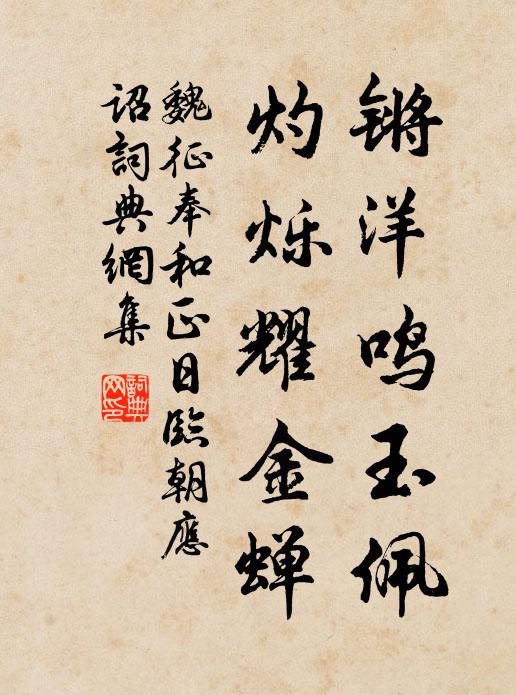 锵洋鸣玉佩
灼烁耀金蝉
魏征奉和正日臨朝應
詔詞典網集
詞典
网印